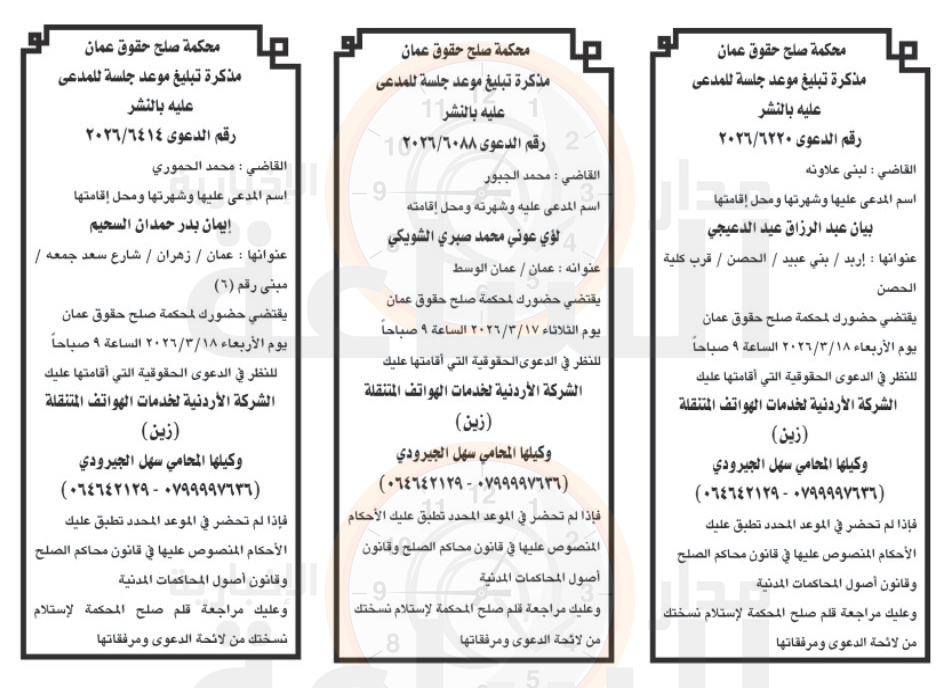 محكمة صلح حقوق عمان
مذكرة تبليغ موعد جلسة للمدعى
عليه بالنشر
رقم الدعوى ٢٠٢٦/٦٢٢٠
القاضي : لبنى علاونه
اسم المدعى عليها وشهرتها ومحل إقامتها
بيان عبد الرزاق عيد الدعيجي
عنوانها : إربد / بني عبيد / الحصن / قرب كلية
الحصن
يقتضي حضورك لمحكمة صلح حقوق عمان
يوم الأربعاء ٢٠٢٦/٣/١٨ الساعة ٩ صباحاً
للنظر في الدعوى الحقوقية التي أقامتها عليك
الشركة الأردنية لخدمات الهواتف المتنقلة
(زين)
وكيلها المحامي سهل الجيرودي
(٠٧٩٩٩٩٧٦٣٦ - ٠٦٤٦٤٢١٢٩)
فإذا لم تحضر في الموعد المحدد تطبق عليك
الأحكام المنصوص عليها في قانون محاكم الصلح
وقانون أصول المحاكمات المدنية
وعليك مراجعة قلم صلح المحكمة لإستلام نسختك
من لائحة الدعوى ومرفقاتها
محكمة صلح حقوق عمان
مذكرة تبليغ موعد جلسة للمدعى
عليه بالنشر
رقم الدعوى ٢٠٢٦/٦٠٨٨
القاضي : محمد الجبور
اسم المدعى عليه وشهرته ومحل إقامته
لؤي عوني محمد صبري الشويكي
عنوانه : عمان / عمان الوسط
يقتضي حضورك لمحكمة صلح حقوق عمان
يوم الثلاثاء ٢٠٢٦/٣/١٧ الساعة ٩ صباحاً
للنظر في الدعوى الحقوقية التي أقامتها عليك
الشركة الأردنية لخدمات الهواتف المتنقلة
(زين)
وكيلها المحامي سهل الجيرودي
(٠٧٩٩٩٩٧٦٣٦ - ٠٦٤٦٤٢١٢٩)
فإذا لم تحضر في الموعد المحدد تطبق عليك الأحكام
المنصوص عليها في قانون محاكم الصلح وقانون
أصول المحاكمات المدنية
وعليك مراجعة قلم صلح المحكمة لإستلام نسختك
من لائحة الدعوى ومرفقاتها
محكمة صلح حقوق عمان
مذكرة تبليغ موعد جلسة للمدعى
عليه بالنشر
رقم الدعوى ٢٠٢٦/٦٤١٤
القاضي : محمد الحموري
اسم المدعى عليها وشهرتها ومحل إقامتها
إيمان بدر حمدان السحيم
عنوانها : عمان / زهران / شارع سعد جمعه /
مبنى رقم (٦)
يقتضي حضورك لمحكمة صلح حقوق عمان
يوم الأربعاء ٢٠٢٦/٣/١٨ الساعة ٩ صباحاً
للنظر في الدعوى الحقوقية التي أقامتها عليك
الشركة الأردنية لخدمات الهواتف المتنقلة
(زين)
وكيلها المحامي سهل الجيرودي
(٠٧٩٩٩٩٧٦٣٦ - ٠٦٤٦٤٢١٢٩)
فإذا لم تحضر في الموعد المحدد تطبق عليك
الأحكام المنصوص عليها في قانون محاكم الصلح
وقانون أصول المحاكمات المدنية
وعليك مراجعة قلم صلح المحكمة لإستلام
نسختك من لائحة الدعوى ومرفقاتها
مدار
الساعة
الإخبارية